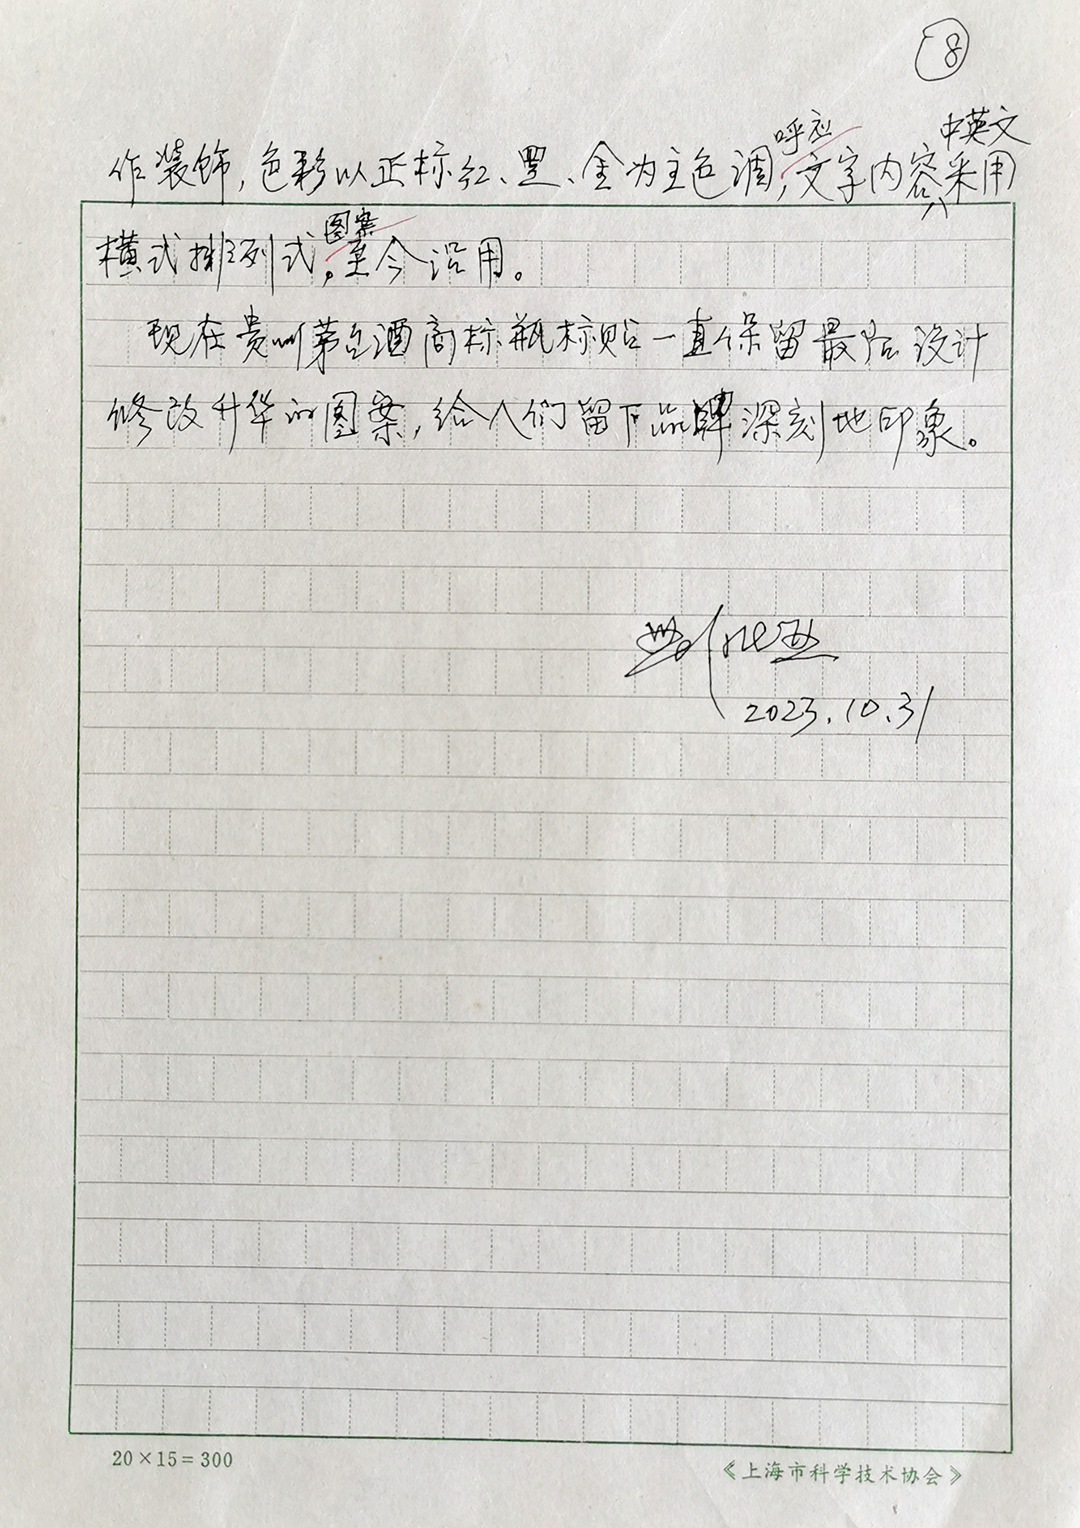 8
呼应
中英文
作装饰,色彩以正标红、黑、金为主色调,文字内容采用
图案
横式排列式。至今沿用。
现在贵州茅台酒商标瓶标贴一直保留最后设计
修改升华的图案,给人们留下品牌深刻地印象。
2023.10.31
20×15=300
《上海市科学技术协会》